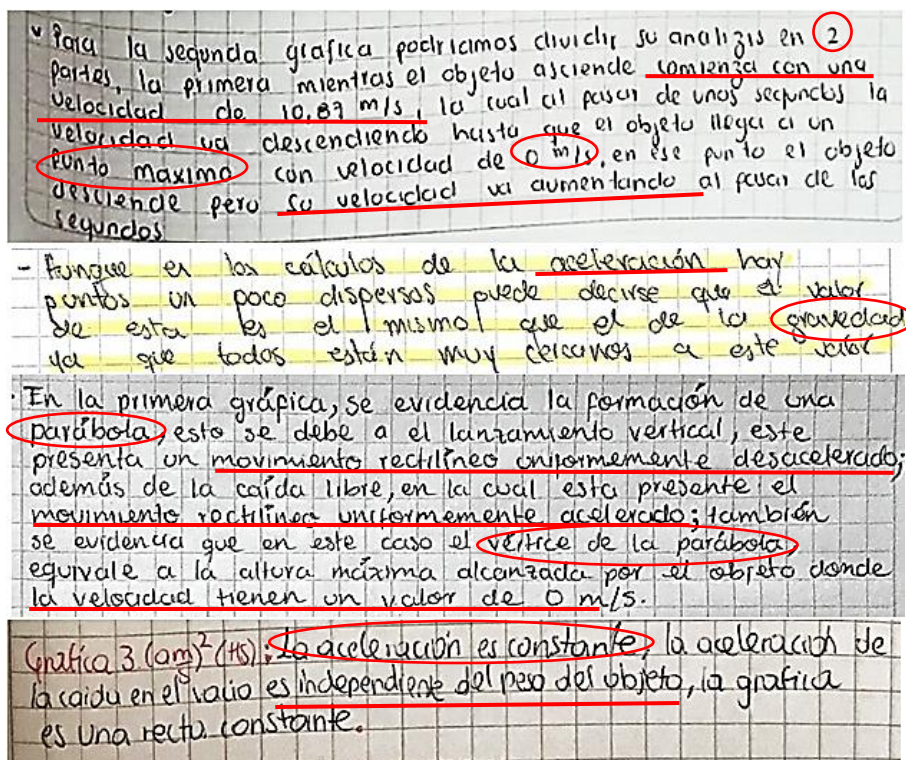 Para la segunda grafica podriamos dividir su analizis en 2
partes, la primera mientras el objeto asciende comienza con una
velocidad de 10.87 m/s, la cual al pasar de unos segundos la
velocidad va descendiendo hasta que el objeto llega a un
punto maximo con velocidad de 0 m/s, en ese punto el objeto
desciende pero su velocidad va aumentando al pasar de los
segundos
- Aunque en los cálculos de la aceleración hay
puntos un poco dispersos puede decirse que el valor
de esta es el mismo que el de la gravedad
ya que todos están muy cercanos a este valor
· En la primera gráfica, se evidencia la formación de una
parábola, esto se debe a el lanzamiento vertical, este
presenta un movimiento rectilíneo uniformemente desacelerado;
además de la caída libre, en la cual esta presente el
movimiento rectilíneo uniformemente acelerado; también
se evidencia que en este caso el vértice de la parábola,
equivale a la altura máxima alcanzada por el objeto donde
la velocidad tienen un valor de 0 m/s.
Grafica 3 (am/s)² (ts): La aceleración es constante, la aceleración de
la caida en el vacio es independiente del peso del objeto, la grafica
es una recta constante.